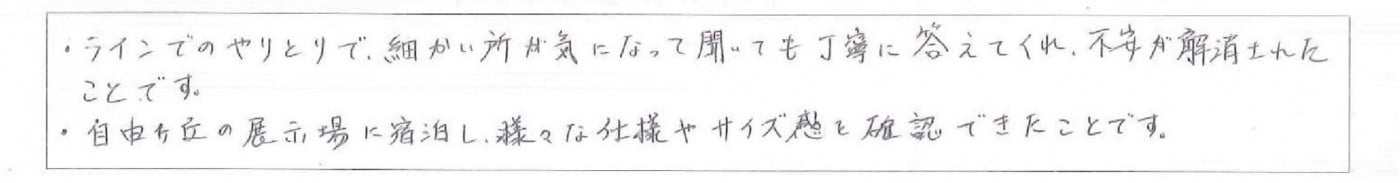 ・ラインでのやりとりで、細かい所が気になって聞いても丁寧に答えてくれ、不安が解消された
ことです。
・自由ヶ丘の展示場に宿泊し、様々な仕様やサイズ感を確認できたことです。